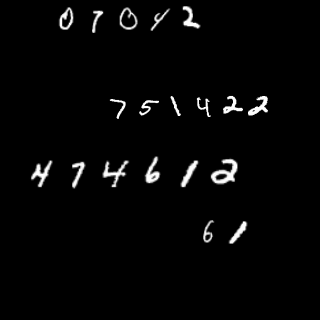 07042
751422
474612
61